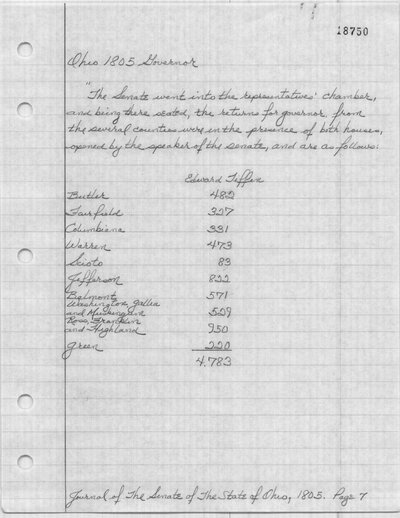 18750
Ohio 1805 Governor
"The Senate went into the representatives' chamber,
and being there seated, the returns for governor, from
the several counties were in the presence of both houses,
opened by the speaker of the senate, and are as follows:
Edward Tiffin
Butler 482
Fairfield 327
Columbiana 331
Warren 473
Scioto 83
Jefferson 822
Belmont 571
Washington, Gallia
and Muskingam 529
Ross, Franklin
and Highland 950
Green 220
4.783
Journal of The Senate of The State of Ohio, 1805. Page 7